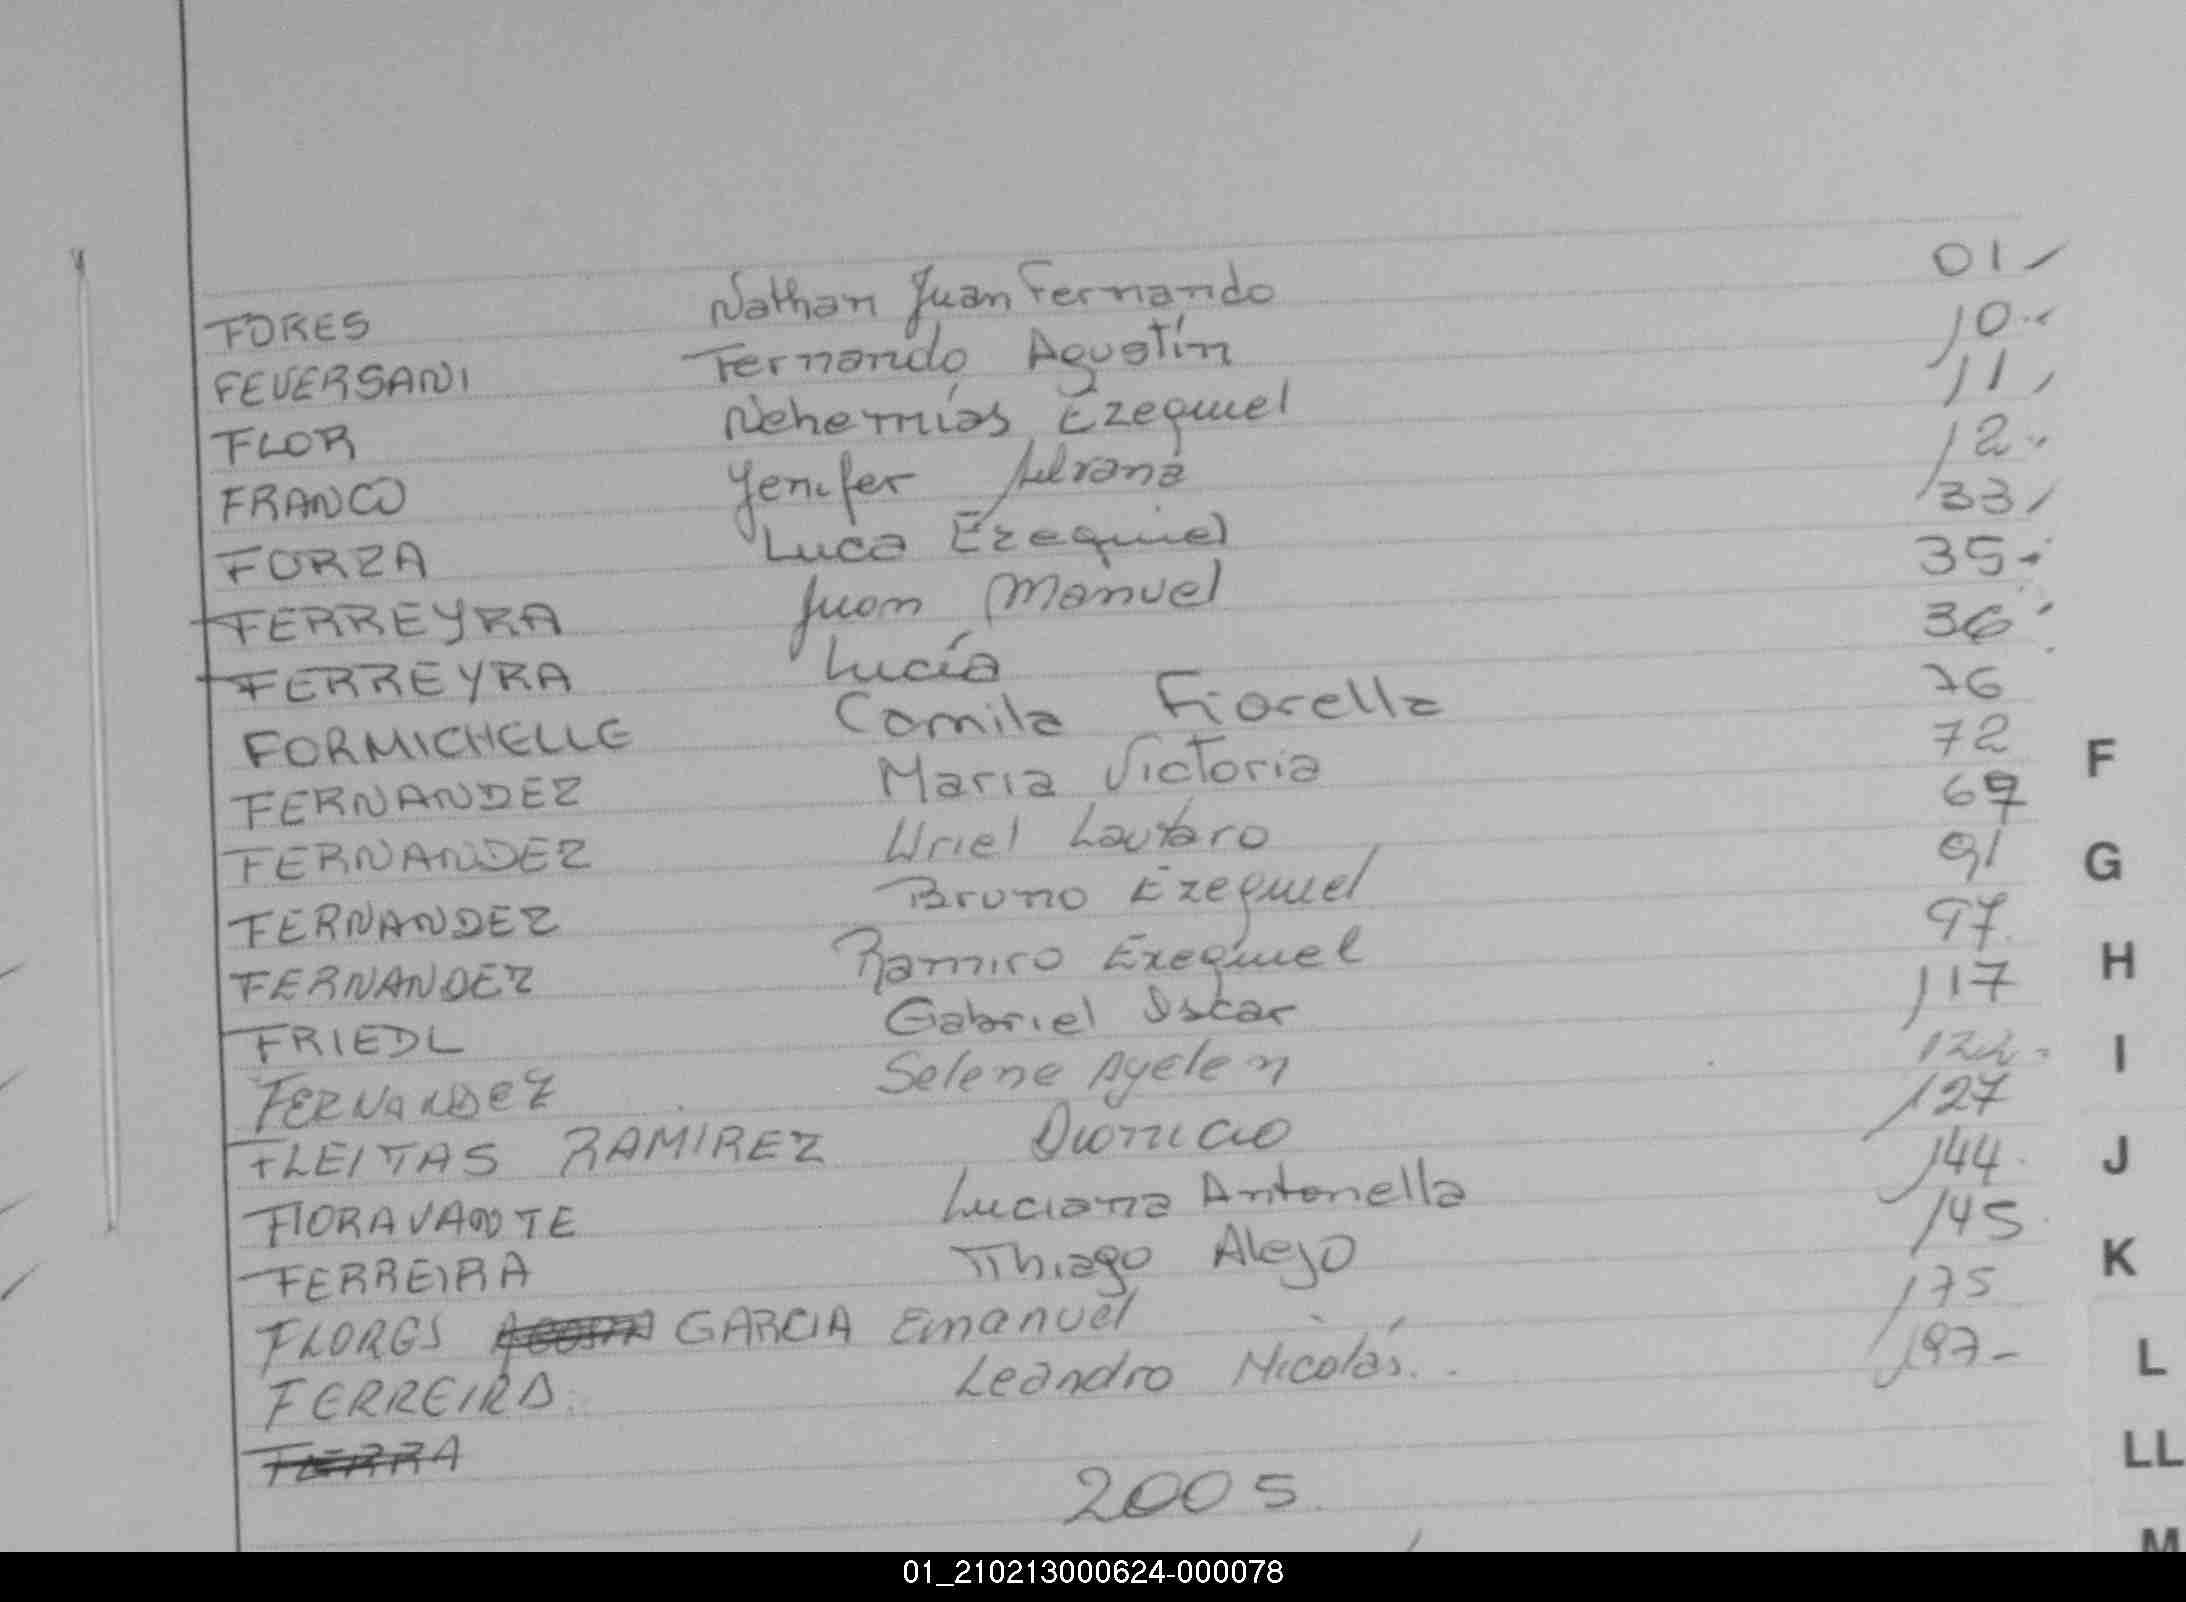 FORES Nathan Juan Fernando 01
FEVERSANI Fernando Agustín 10
FLOR Nehemías Ezequiel 11
FRANCO Yenifer 12
FORZA Luca Ezequiel 33
FERREYRA Juan Manuel 35
FERREYRA Lucía 36
FORMICHELLE Camila Fiorella 76
FERNANDEZ Maria Victoria 72
FERNANDEZ Uriel Lautaro
FERNANDEZ Bruno Ezequiel 91
FERNANDEZ Ramiro Exequiel 97
FRIEDL Gabriel Oscar 117
FERNANDEZ Selene Ayelen
FLEITAS RAMIREZ Dionicio 127
FIORAVANTE Luciana Antonella 144
FERREIRA Thiago Alejo 145
FLORES GARCIA Emanuel 175
FERREIRA Leandro Nicolás 197
2005
F
G
H
I
J
K
L
LL
M
01_210213000624-000078